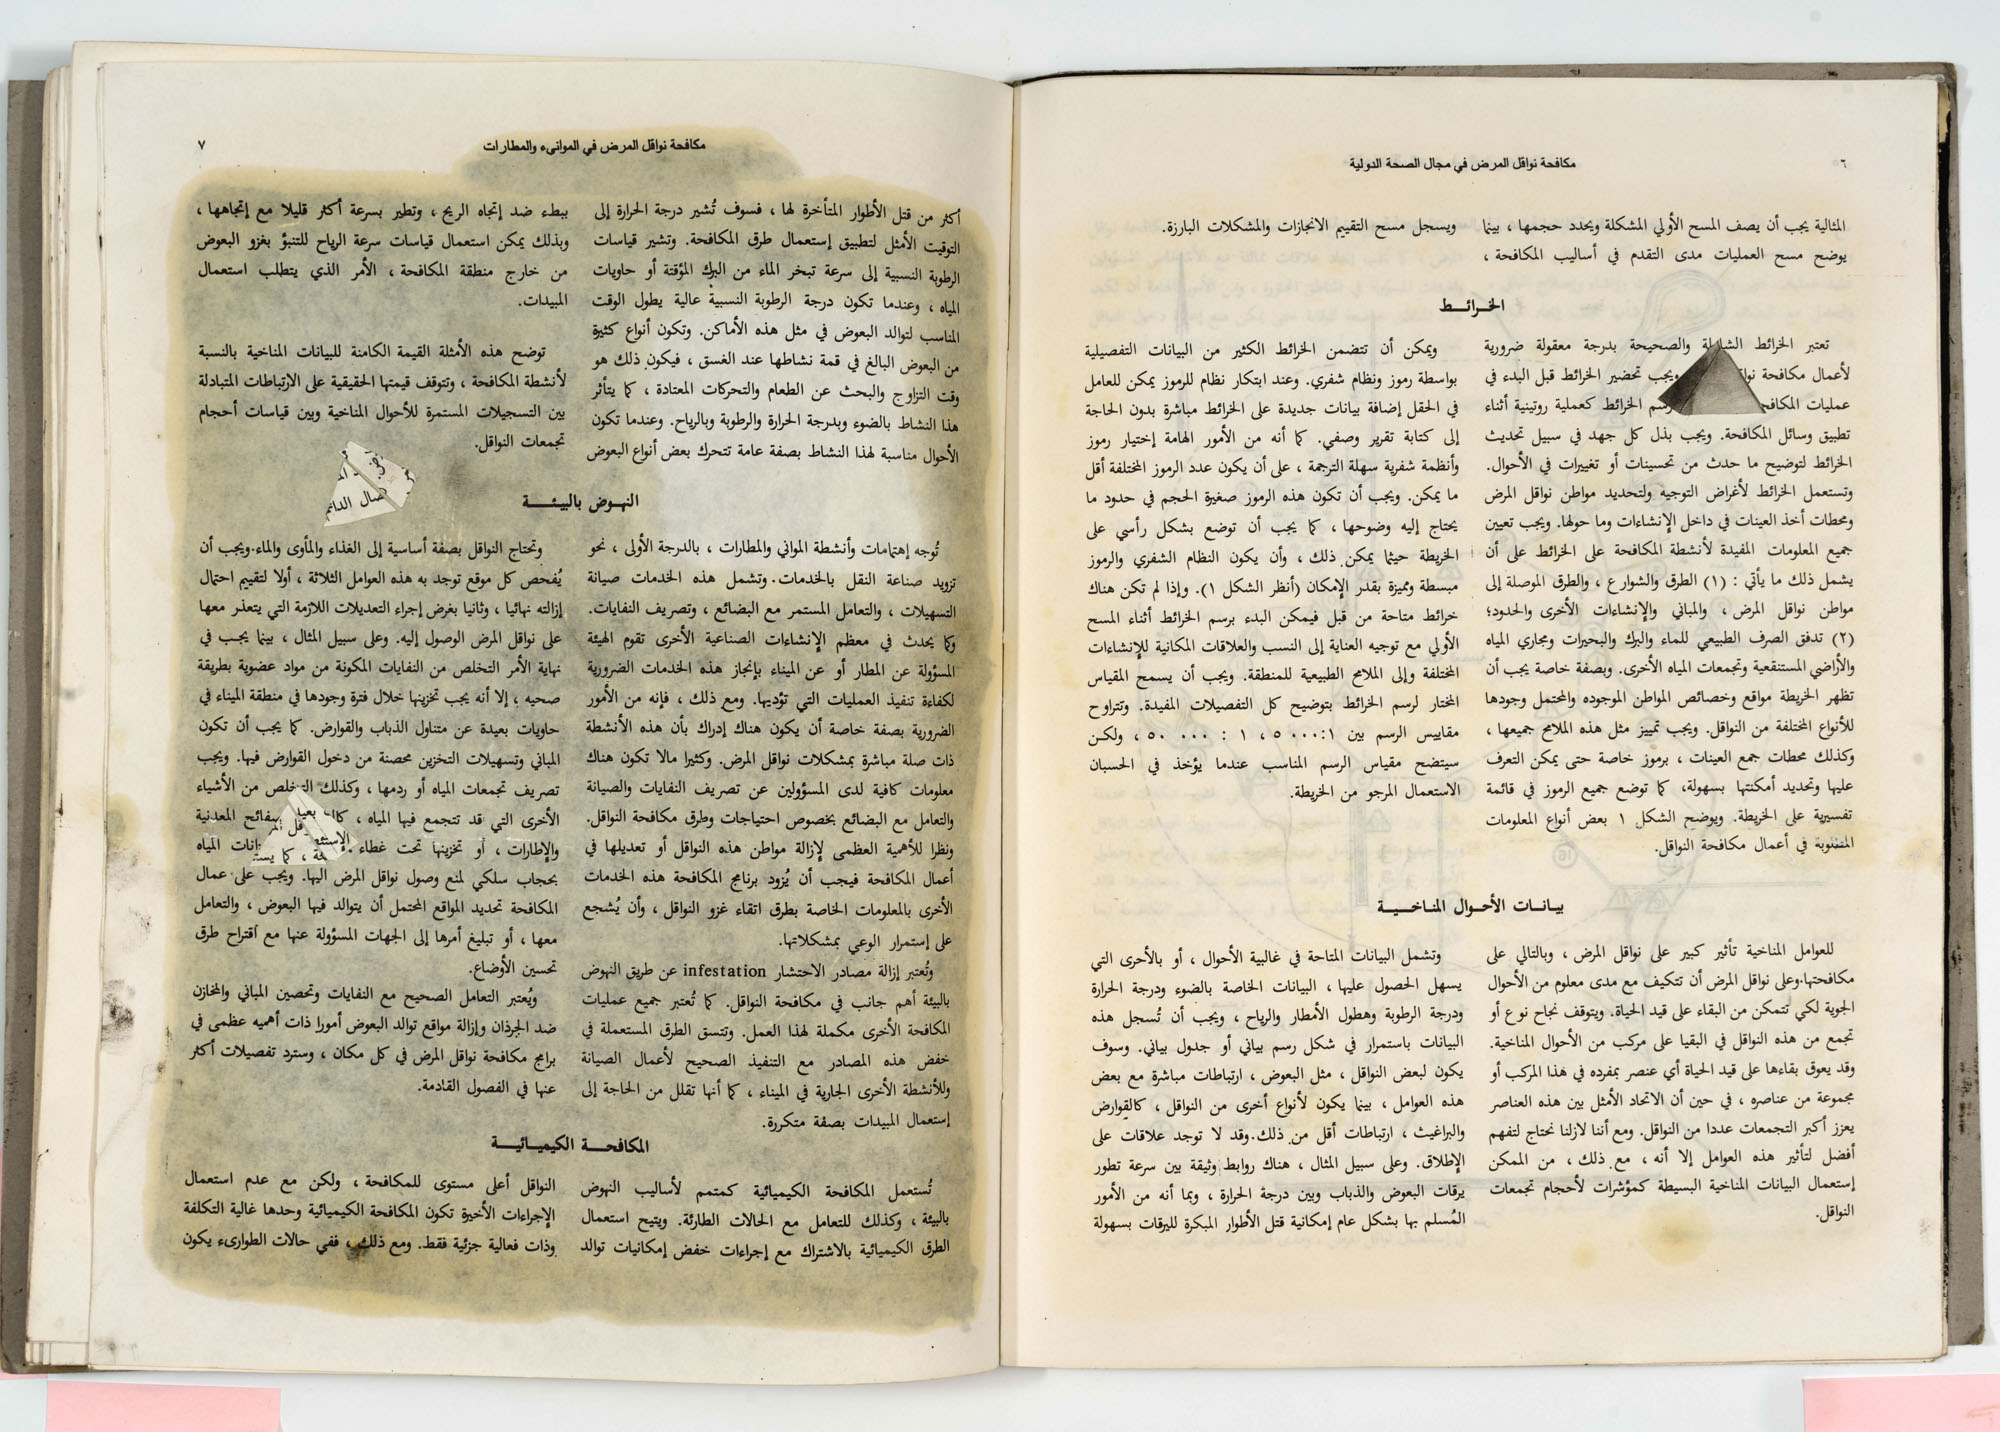 ٦
مكافحة نواقل المرض في مجال الصحة الدولية
المثالية يجب أن يصف المسح الأولي المشكلة ويحدد حجمها ، بينما
يوضح مسح العمليات مدى التقدم في أساليب المكافحة ،
ويسجل مسح التقييم الانجازات والمشكلات البارزة.
الخرائط
تعتبر الخرائط والصحيحة بدرجة معقولة ضرورية
لأعمال مكافحة ويجب تحضير الخرائط قبل البدء في
عمليات رسم الخرائط كعملية روتينية أثناء
تطبيق وسائل المكافحة. ويجب بذل كل جهد في سبيل تحديث
الخرائط لتوضيح ما حدث من تحسينات أو تغييرات في الأحوال.
وتستعمل الخرائط لأغراض التوجيه ولتحديد مواطن نواقل المرض
ومحطات أخذ العينات في داخل الإنشاءات وما حولها. ويجب تعيين
جميع المعلومات المفيدة لأنشطة المكافحة على الخرائط على أن
يشمل ذلك ما يأتي : (١) الطرق والشوارع ، والطرق الموصلة إلى
مواطن نواقل المرض ، والمباني والإنشاءات الأخرى والحدود؛
(٢) تدفق الصرف الطبيعي للماء والبرك والبحيرات ومجاري المياه
والأراضي المستنقعية وتجمعات المياه الأخرى. وبصفة خاصة يجب أن
تظهر الخريطة مواقع وخصائص المواطن الموجوده والمحتمل وجودها
للأنواع المختلفة من النواقل. ويجب تمييز مثل هذه الملامح جميعها ،
وكذلك محطات جمع العينات ، برموز خاصة حتى يمكن التعرف
عليها وتحديد أمكنتها بسهولة، كما توضع جميع الرموز في قائمة
تفسيرية على الخريطة. ويوضح الشكل ١ بعض أنواع المعلومات
المطلوبة في أعمال مكافحة النواقل.
ويمكن أن تتضمن الخرائط الكثير من البيانات التفصيلية
بواسطة رموز ونظام شفري. وعند ابتكار نظام للرموز يمكن للعامل
في الحقل إضافة بيانات جديدة على الخرائط مباشرة بدون الحاجة
إلى كتابة تقرير وصفي. كما أنه من الأمور الهامة إختيار رموز
وأنظمة شفرية سهلة الترجمة ، على أن يكون عدد الرموز المختلفة أقل
ما يمكن. ويجب أن تكون هذه الرموز صغيرة الحجم في حدود ما
يحتاج إليه وضوحها ، كما يجب أن توضع بشكل رأسي على
الخريطة حيثما يمكن ذلك ، وأن يكون النظام الشفري والرموز
مبسطة ومميزة بقدر الإمكان (أنظر الشكل ١). وإذا لم تكن هناك
خرائط متاحة من قبل فيمكن البدء برسم الخرائط أثناء المسح
الأولي مع توجيه العناية إلى النسب والعلاقات المكانية للإنشاءات
المختلفة وإلى الملامح الطبيعية للمنطقة. ويجب أن يسمح المقياس
المختار لرسم الخرائط بتوضيح كل التفصيلات المفيدة. وتتراوح
مقاييس الرسم بين ١:٥٠٠٠ ، ١ : ٥٠٠٠٠ ، ولكن
سيتضح مقياس الرسم المناسب عندما يؤخذ في الحسبان
الاستعمال المرجو من الخريطة.
بيانات الأحوال المناخية
للعوامل المناخية تأثير كبير على نواقل المرض ، وبالتالي على
مكافحتها.وعلى نواقل المرض أن تتكيف مع مدى معلوم من الأحوال
الجوية لكي تتمكن من البقاء على قيد الحياة. ويتوقف نجاح نوع أو
تجمع من هذه النواقل في البقيا على مركب من الأحوال المناخية.
وقد يعوق بقاءها على قيد الحياة أي عنصر بمفرده في هذا المركب أو
مجموعة من عناصره ، في حين أن الاتحاد الأمثل بين هذه العناصر
يعزز أكبر التجمعات عددا من النواقل. ومع أننا لازلنا نحتاج لتفهم
أفضل لتأثير هذه العوامل إلا أنه ، مع ذلك ، من الممكن
إستعمال البيانات المناخية البسيطة كمؤشرات لأحجام تجمعات
النواقل.
وتشمل البيانات المتاحة في غالبية الأحوال ، أو بالأحرى التي
يسهل الحصول عليها ، البيانات الخاصة بالضوء ودرجة الحرارة
ودرجة الرطوبة وهطول الأمطار والرياح ، ويجب أن تُسجل هذه
البيانات باستمرار في شكل رسم بياني أو جدول بياني. وسوف
يكون لبعض النواقل ، مثل البعوض ، ارتباطات مباشرة مع بعض
هذه العوامل ، بينما يكون لأنواع أخرى من النواقل ، كالقوارض
والبراغيث ، ارتباطات أقل من ذلك.وقد لا توجد علاقات على
الإطلاق. وعلى سبيل المثال ، هناك روابط وثيقة بين سرعة تطور
يرقات البعوض والذباب وبين درجة الحرارة ، وبما أنه من الأمور
المُسلم بها بشكل عام إمكانية قتل الأطوار المبكرة لليرقات بسهولة
مكافحة نواقل المرض في الموانيء والمطارات
٧
أكثر من قتل الأطوار المتأخرة لها ، فسوف تُشير درجة الحرارة إلى
التوقيت الأمثل لتطبيق إستعمال طرق المكافحة. وتشير قياسات
الرطوبة النسبية إلى سرعة تبخر الماء من البرك المؤقتة أو حاويات
المياه ، وعندما تكون درجة الرطوبة النسبية عالية يطول الوقت
المناسب لتوالد البعوض في مثل هذه الأماكن. وتكون أنواع كثيرة
من البعوض البالغ في قمة نشاطها عند الغسق ، فيكون ذلك هو
وقت التزاوج والبحث عن الطعام والتحركات المعتادة ، كما يتأثر
هذا النشاط بالضوء وبدرجة الحرارة والرطوبة وبالرياح. وعندما تكون
الأحوال مناسبة لهذا النشاط بصفة عامة تتحرك بعض أنواع البعوض
ببطء ضد إتجاه الريح ، وتطير بسرعة أكثر قليلا مع إتجاهها ،
وبذلك يمكن استعمال قياسات سرعة الرياح للتنبؤ بغزو البعوض
من خارج منطقة المكافحة ، الأمر الذي يتطلب استعمال
المبيدات.
توضح هذه الأمثلة القيمة الكامنة للبيانات المناخية بالنسبة
لأنشطة المكافحة ، وتتوقف قيمتها الحقيقية على الارتباطات المتبادلة
بين التسجيلات المستمرة للأحوال المناخية وبين قياسات أحجام
تجمعات النواقل.
النهوض بالبيئة
تُوجه إهتمامات وأنشطة المواني والمطارات ، بالدرجة الأولى ، نحو
تزويد صناعة النقل بالخدمات. وتشمل هذه الخدمات صيانة
التسهيلات ، والتعامل المستمر مع البضائع ، وتصريف النفايات.
وكما يحدث في معظم الإنشاءات الصناعية الأخرى تقوم الهيئة
المسؤولة عن المطار أو عن الميناء بإنجاز هذه الخدمات الضرورية
لكفاءة تنفيذ العمليات التي تؤديها. ومع ذلك ، فإنه من الأمور
الضرورية بصفة خاصة أن يكون هناك إدراك بأن هذه الأنشطة
ذات صلة مباشرة بمشكلات نواقل المرض. وكثيرا مالا تكون هناك
معلومات كافية لدى المسؤولين عن تصريف النفايات والصيانة
والتعامل مع البضائع بخصوص احتياجات وطرق مكافحة النواقل.
ونظرا للأهمية العظمى لإزالة مواطن هذه النواقل أو تعديلها في
أعمال المكافحة فيجب أن يُزود برنامج المكافحة هذه الخدمات
الأخرى بالمعلومات الخاصة بطرق اتقاء غزو النواقل ، وأن يُشجع
على إستمرار الوعي بمشكلاتها.
وتُعتبر إزالة مصادر الاحتشار infestation عن طريق النهوض
بالبيئة أهم جانب في مكافحة النواقل. كما تُعتبر جميع عمليات
المكافحة الأخرى مكملة لهذا العمل. وتتسق الطرق المستعملة في
خفض هذه المصادر مع التنفيذ الصحيح لأعمال الصيانة
وللأنشطة الأخرى الجارية في الميناء ، كما أنها تقلل من الحاجة إلى
إستعمال المبيدات بصفة متكررة.
وتحتاج النواقل بصفة أساسية إلى الغذاء والمأوى والماء.ويجب أن
يُفحص كل موقع توجد به هذه العوامل الثلاثة ، أولا لتقييم احتمال
إزالته نهائيا ، وثانيا بغرض إجراء التعديلات اللازمة التي يتعذر معها
على نواقل المرض الوصول إليه. وعلى سبيل المثال ، بينما يجب في
نهاية الأمر التخلص من النفايات المكونة من مواد عضوية بطريقة
صحيه ، إلا أنه يجب تخزينها خلال فترة وجودها في منطقة الميناء في
حاويات بعيدة عن متناول الذباب والقوارض. كما يجب أن تكون
المباني وتسهيلات التخزين محصنة من دخول القوارض فيها. ويجب
تصريف تجمعات المياه أو ردمها ، وكذلك التخلص من الأشياء
الأخرى التي قد تتجمع فيها المياه ، المعدنية
والإطارات ، أو تخزينها تحت غطاء المياه
بحجاب سلكي لمنع وصول نواقل المرض اليها. ويجب على عمال
المكافحة تحديد المواقع المحتمل أن يتوالد فيها البعوض ، والتعامل
معها ، أو تبليغ أمرها إلى الجهات المسؤولة عنها مع اقتراح طرق
تحسين الأوضاع.
ويُعتبر التعامل الصحيح مع النفايات وتحصين المباني والمخازن
ضد الجرذان وإزالة مواقع توالد البعوض أمورا ذات أهميه عظمى في
برامج مكافحة نواقل المرض في كل مكان ، وسترد تفصيلات أكثر
عنها في الفصول القادمة.
المكافحة الكيميائية
تُستعمل المكافحة الكيميائية كمتمم لأساليب النهوض
بالبيئة ، وكذلك للتعامل مع الحالات الطارئة. ويتيح استعمال
الطرق الكيميائية بالاشتراك مع إجراءات خفض إمكانيات توالد
النواقل أعلى مستوى للمكافحة ، ولكن مع عدم استعمال
الإجراءات الأخيرة تكون المكافحة الكيميائية وحدها غالية التكلفة
وذات فعالية جزئية فقط. ومع ذلك ، ففي حالات الطوارىء يكون